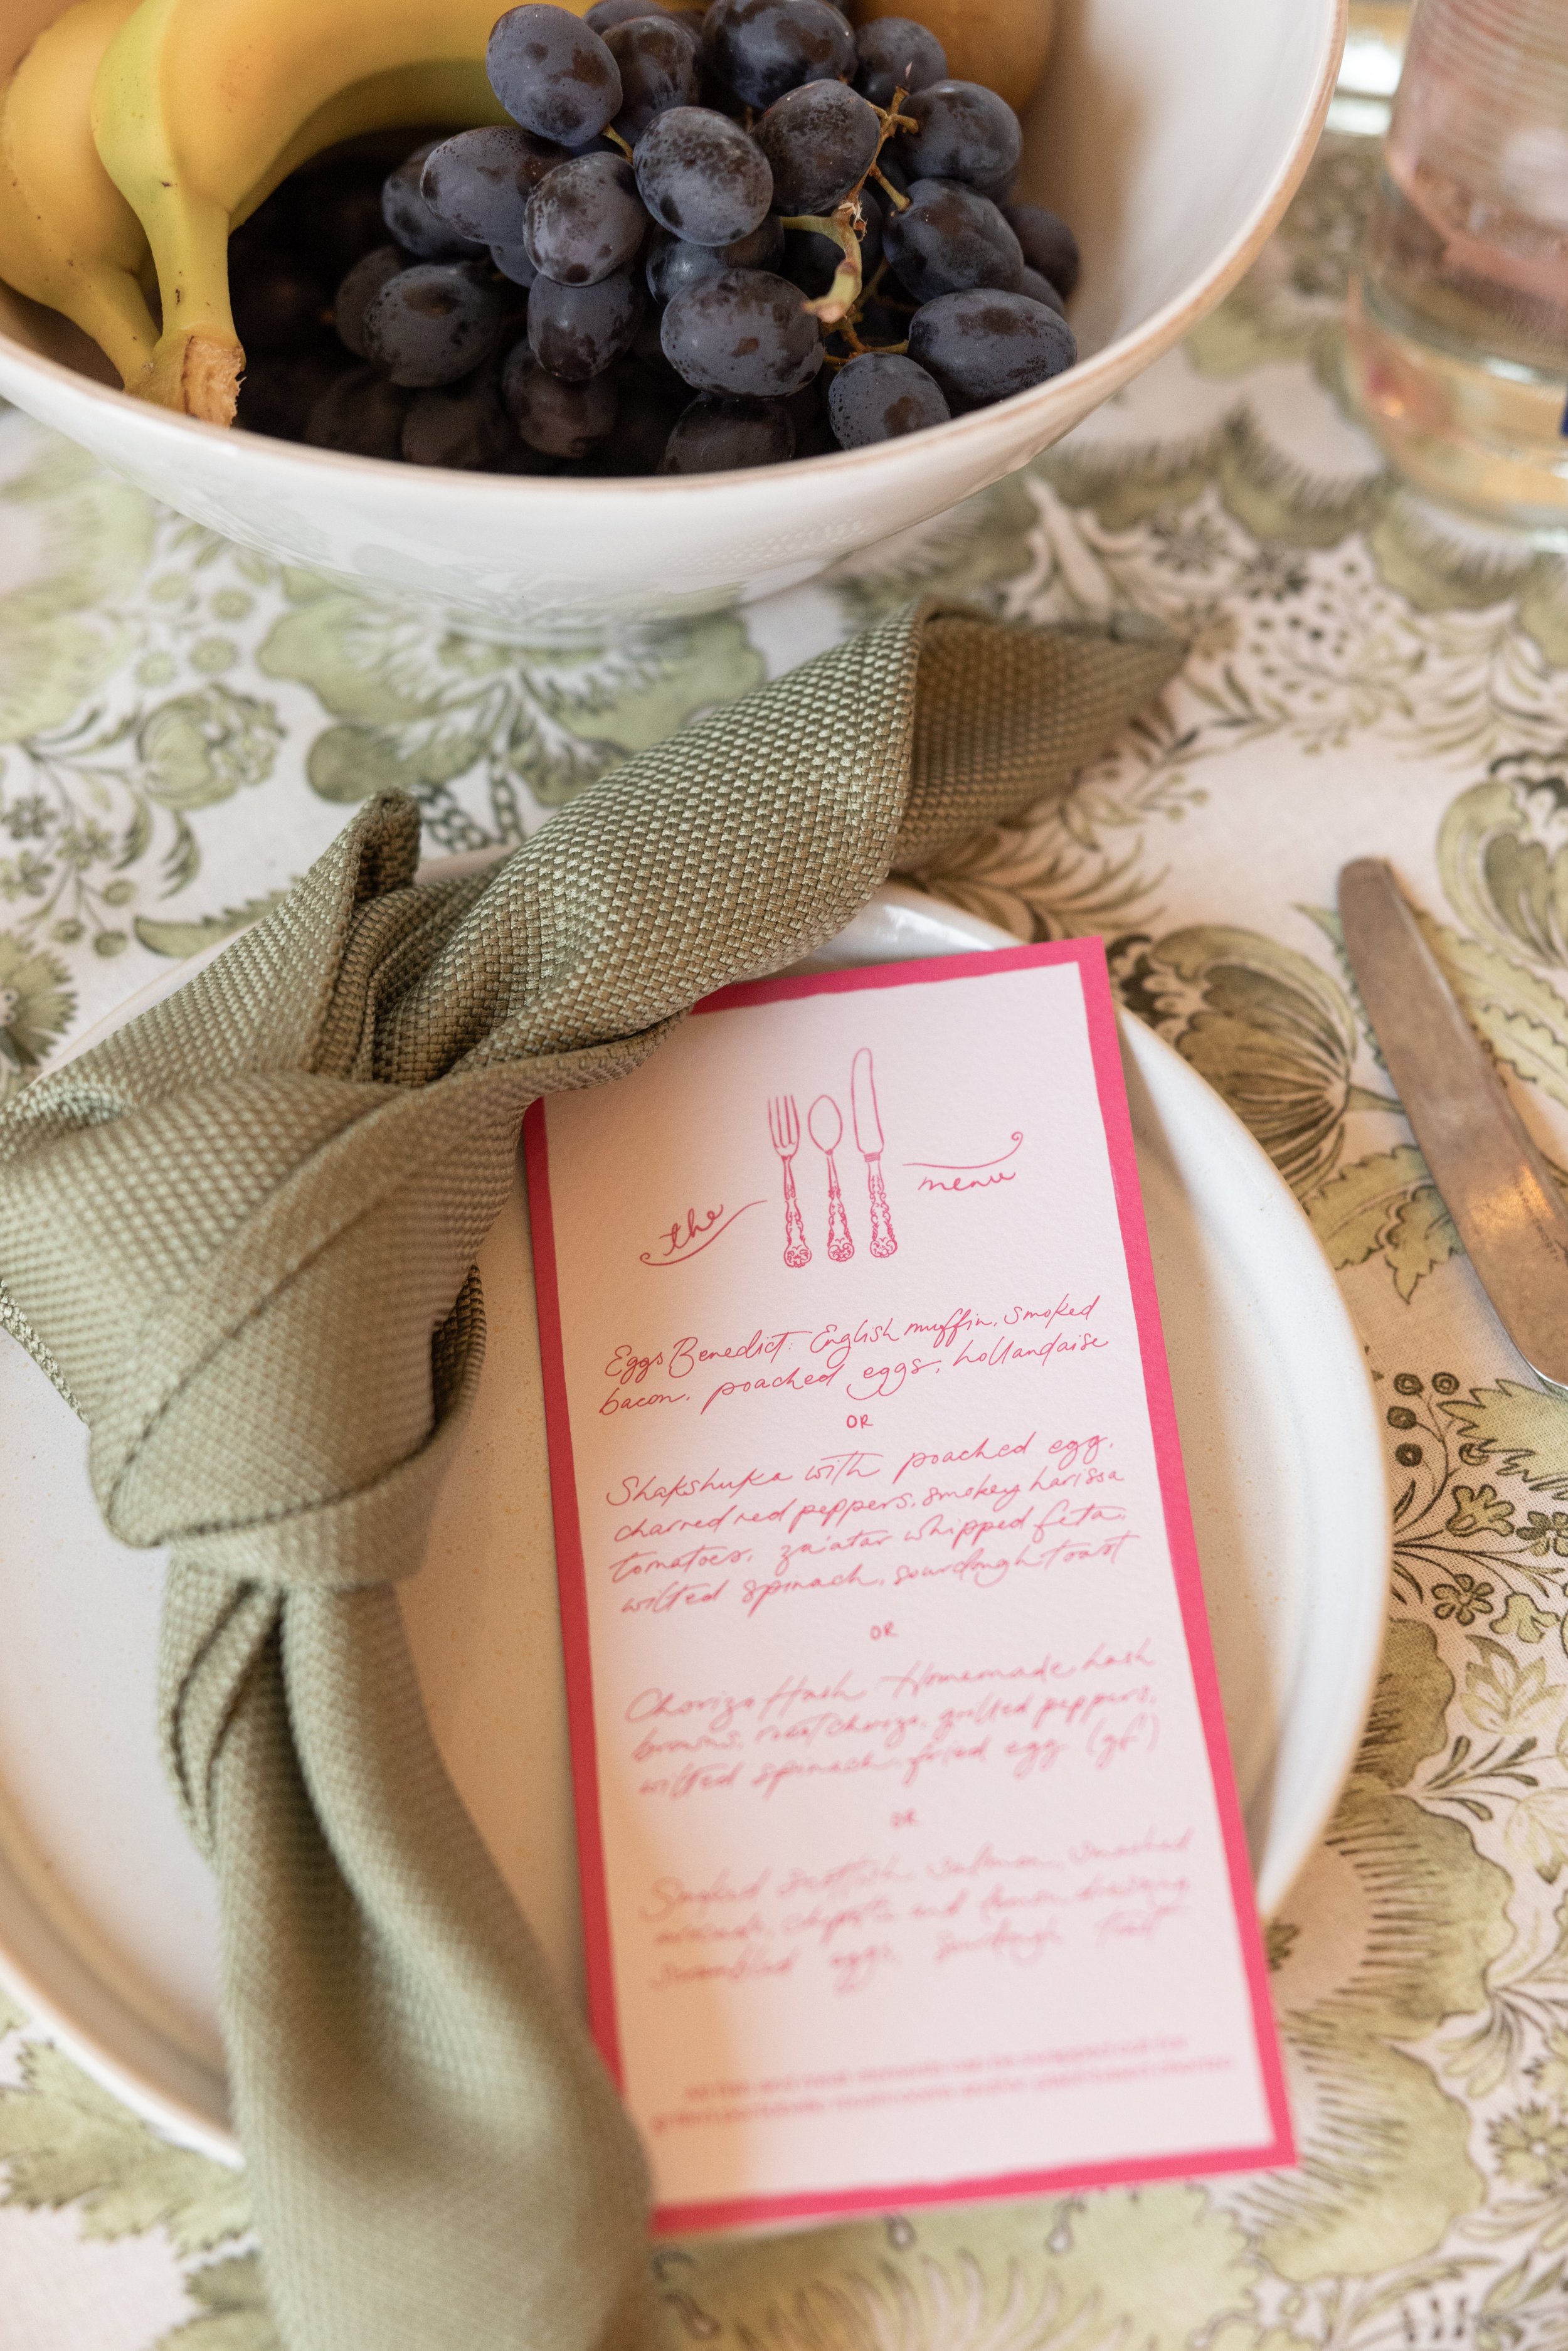 the menu
Eggs Benedict: English muffin, smoked
bacon, poached eggs, hollandaise
OR
Shakshuka with poached egg,
charred red peppers, smokey harissa
tomatoes, za'atar whipped feta,
wilted spinach, sourdough toast
OR
Chorizo Hash - Homemade hash
browns, roast chorizo, grilled peppers,
wilted spinach, fried egg (gf)
OR
Smoked Scottish salmon, smashed
avocado, chipotle and lemon dressing
scrambled eggs, sourdough toast